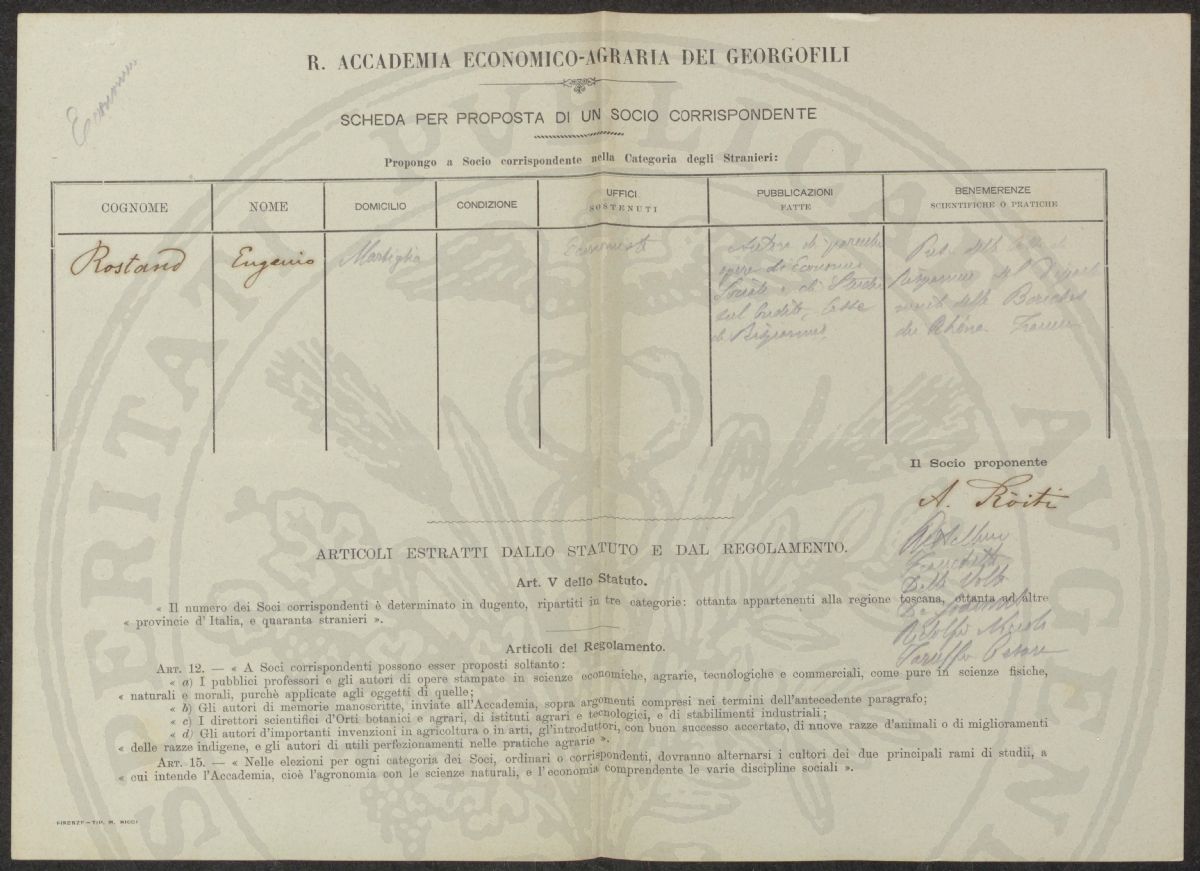 R. ACCADEMIA ECONOMICO-AGRARIA DEI GEORGOFILI
SCHEDA PER PROPOSTA DI UN SOCIO CORRISPONDENTE
Propongo a Socio corrispondente nella Categoria degli Stranieri:
COGNOME
NOME
DOMICILIO
CONDIZIONE
UFFICI
SOSTENUTI
PUBBLICAZIONI
FATTE
BENEMERENZE
SCIENTIFICHE O PRATICHE
Rostand
Eugenio
Marsiglia
Autore di parecchie
opere di Economia
Sociale e di Studi
sul Credito, Casse
di Risparmio
Il Socio proponente
A. Ròiti
ARTICOLI ESTRATTI DALLO STATUTO E DAL REGOLAMENTO.
Art. V dello Statuto.
« Il numero dei Soci corrispondenti è determinato in dugento, ripartiti in tre categorie: ottanta appartenenti alla regione toscana, ottanta ad altre
« provincie d'Italia, e quaranta stranieri ».
Articoli del Regolamento.
ART. 12. — « A Soci corrispondenti possono esser proposti soltanto:
« a) I pubblici professori e gli autori di opere stampate in scienze economiche, agrarie, tecnologiche e commerciali, come pure in scienze fisiche,
« naturali e morali, purchè applicate agli oggetti di quelle;
« b) Gli autori di memorie manoscritte, inviate all'Accademia, sopra argomenti compresi nei termini dell'antecedente paragrafo;
« c) I direttori scientifici d'Orti botanici e agrari, di istituti agrari e tecnologici, e di stabilimenti industriali;
« d) Gli autori d'importanti invenzioni in agricoltura o in arti, gl'introduttori, con buon successo accertato, di nuove razze d'animali o di miglioramenti
« delle razze indigene, e gli autori di utili perfezionamenti nelle pratiche agrarie ».
ART. 15. — « Nelle elezioni per ogni categoria dei Soci, ordinari o corrispondenti, dovranno alternarsi i cultori dei due principali rami di studii, a
« cui intende l'Accademia, cioè l'agronomia con le scienze naturali, e l'economia comprendente le varie discipline sociali ».
FIRENZE — TIP. M. RICCI